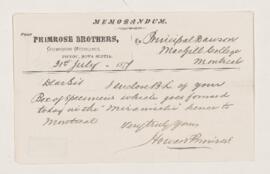 MEMORANDUM.
From
PRIMROSE BROTHERS,
PICTOU, NOVA SCOTIA.
31st July 187
To Principal Dawson
MacGill College
Montreal
Dear Sir I enclose B.L. of your
Box of Specimens which goes forward
today in the "Miramichi" hence to
Montreal
Very truly Yours
Howard Primrose